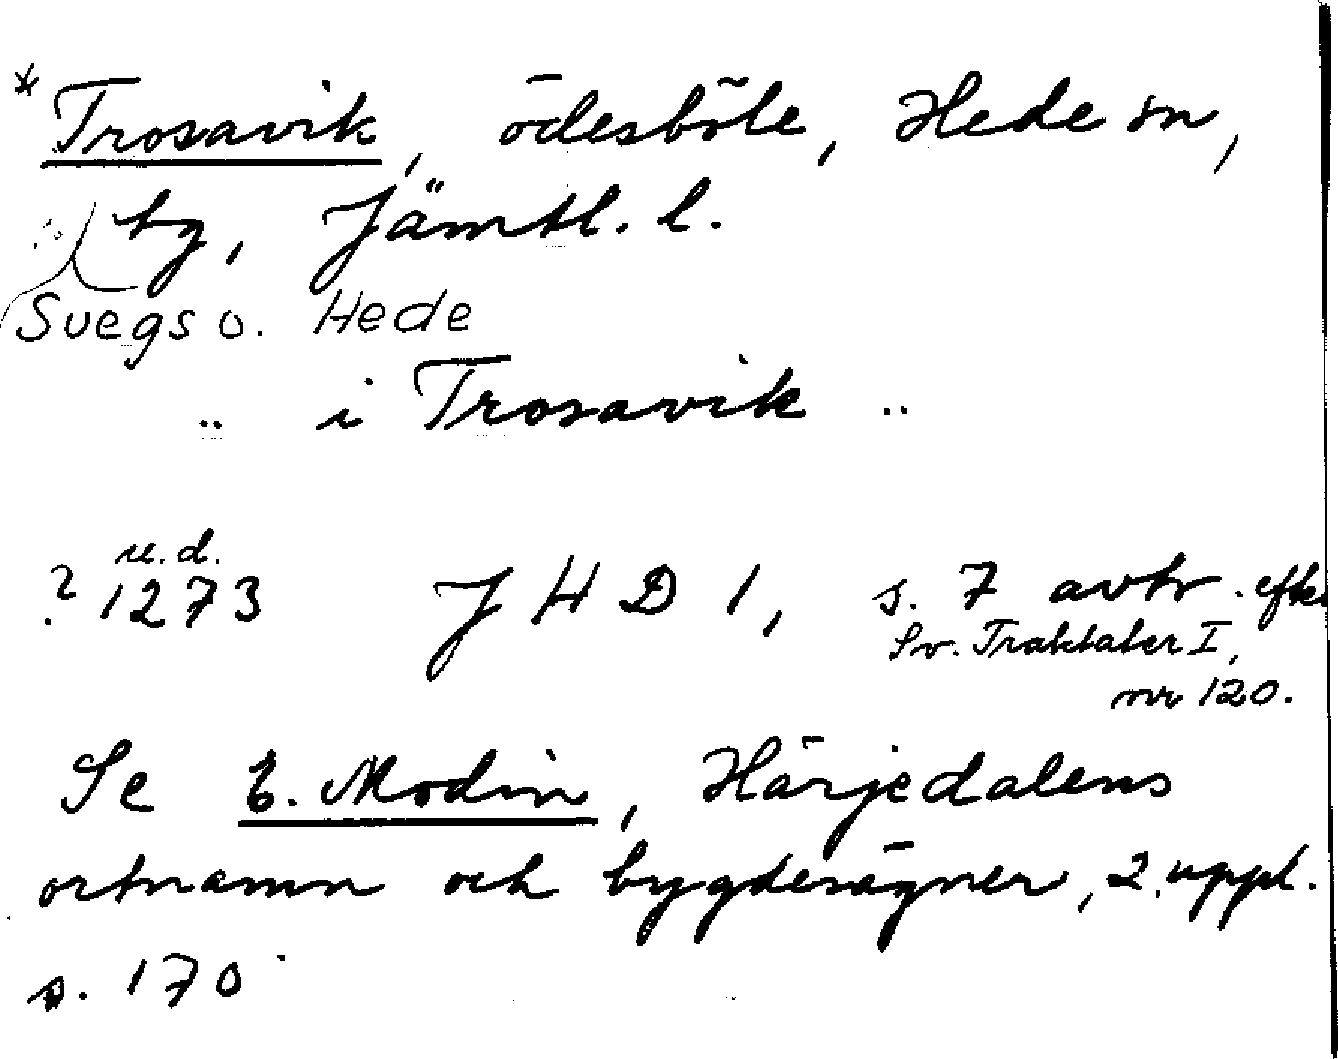 * Trosavik, ödesböle, Hede sn,
tg, Jämtl. l.
Svegs o. Hede
.. i Trosavik ..
u.d.
? 1273 J H D 1, s. 7 avtr. eft
Sv. Traktater I,
nr 120.
Se E. Modin, Härjedalens
ortnamn och bygdesägner, 2. uppl.
s. 170